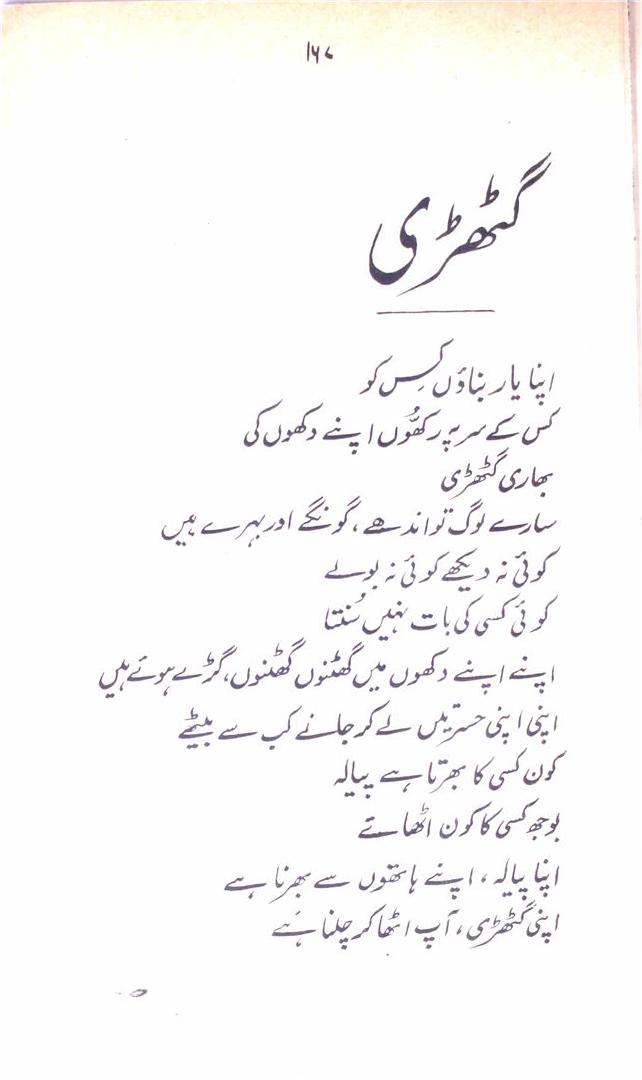 ۱۶۷
گٹھڑی
اپنا یار بناؤں کِس کو
کس کے سر پر رکھُّوں اپنے دکھوں کی
بھاری گٹھڑی
سارے لوگ تو اندھے، گونگے اور بہرے ہیں
کوئی نہ دیکھے کوئی نہ بولے
کوئی کسی کی بات نہیں سُنتا
اپنے اپنے دکھوں میں گھٹنوں گھٹنوں، گڑے ہوئے ہیں
اپنی اپنی حسرتیں لے کر جانے کب سے بیٹھے
کون کسی کا بھرتا ہے پیالہ
بوجھ کسی کا کون اٹھاتے
اپنا پیالہ، اپنے ہاتھوں سے بھرنا ہے
اپنی گٹھڑی، آپ اٹھا کر چلنا ہے